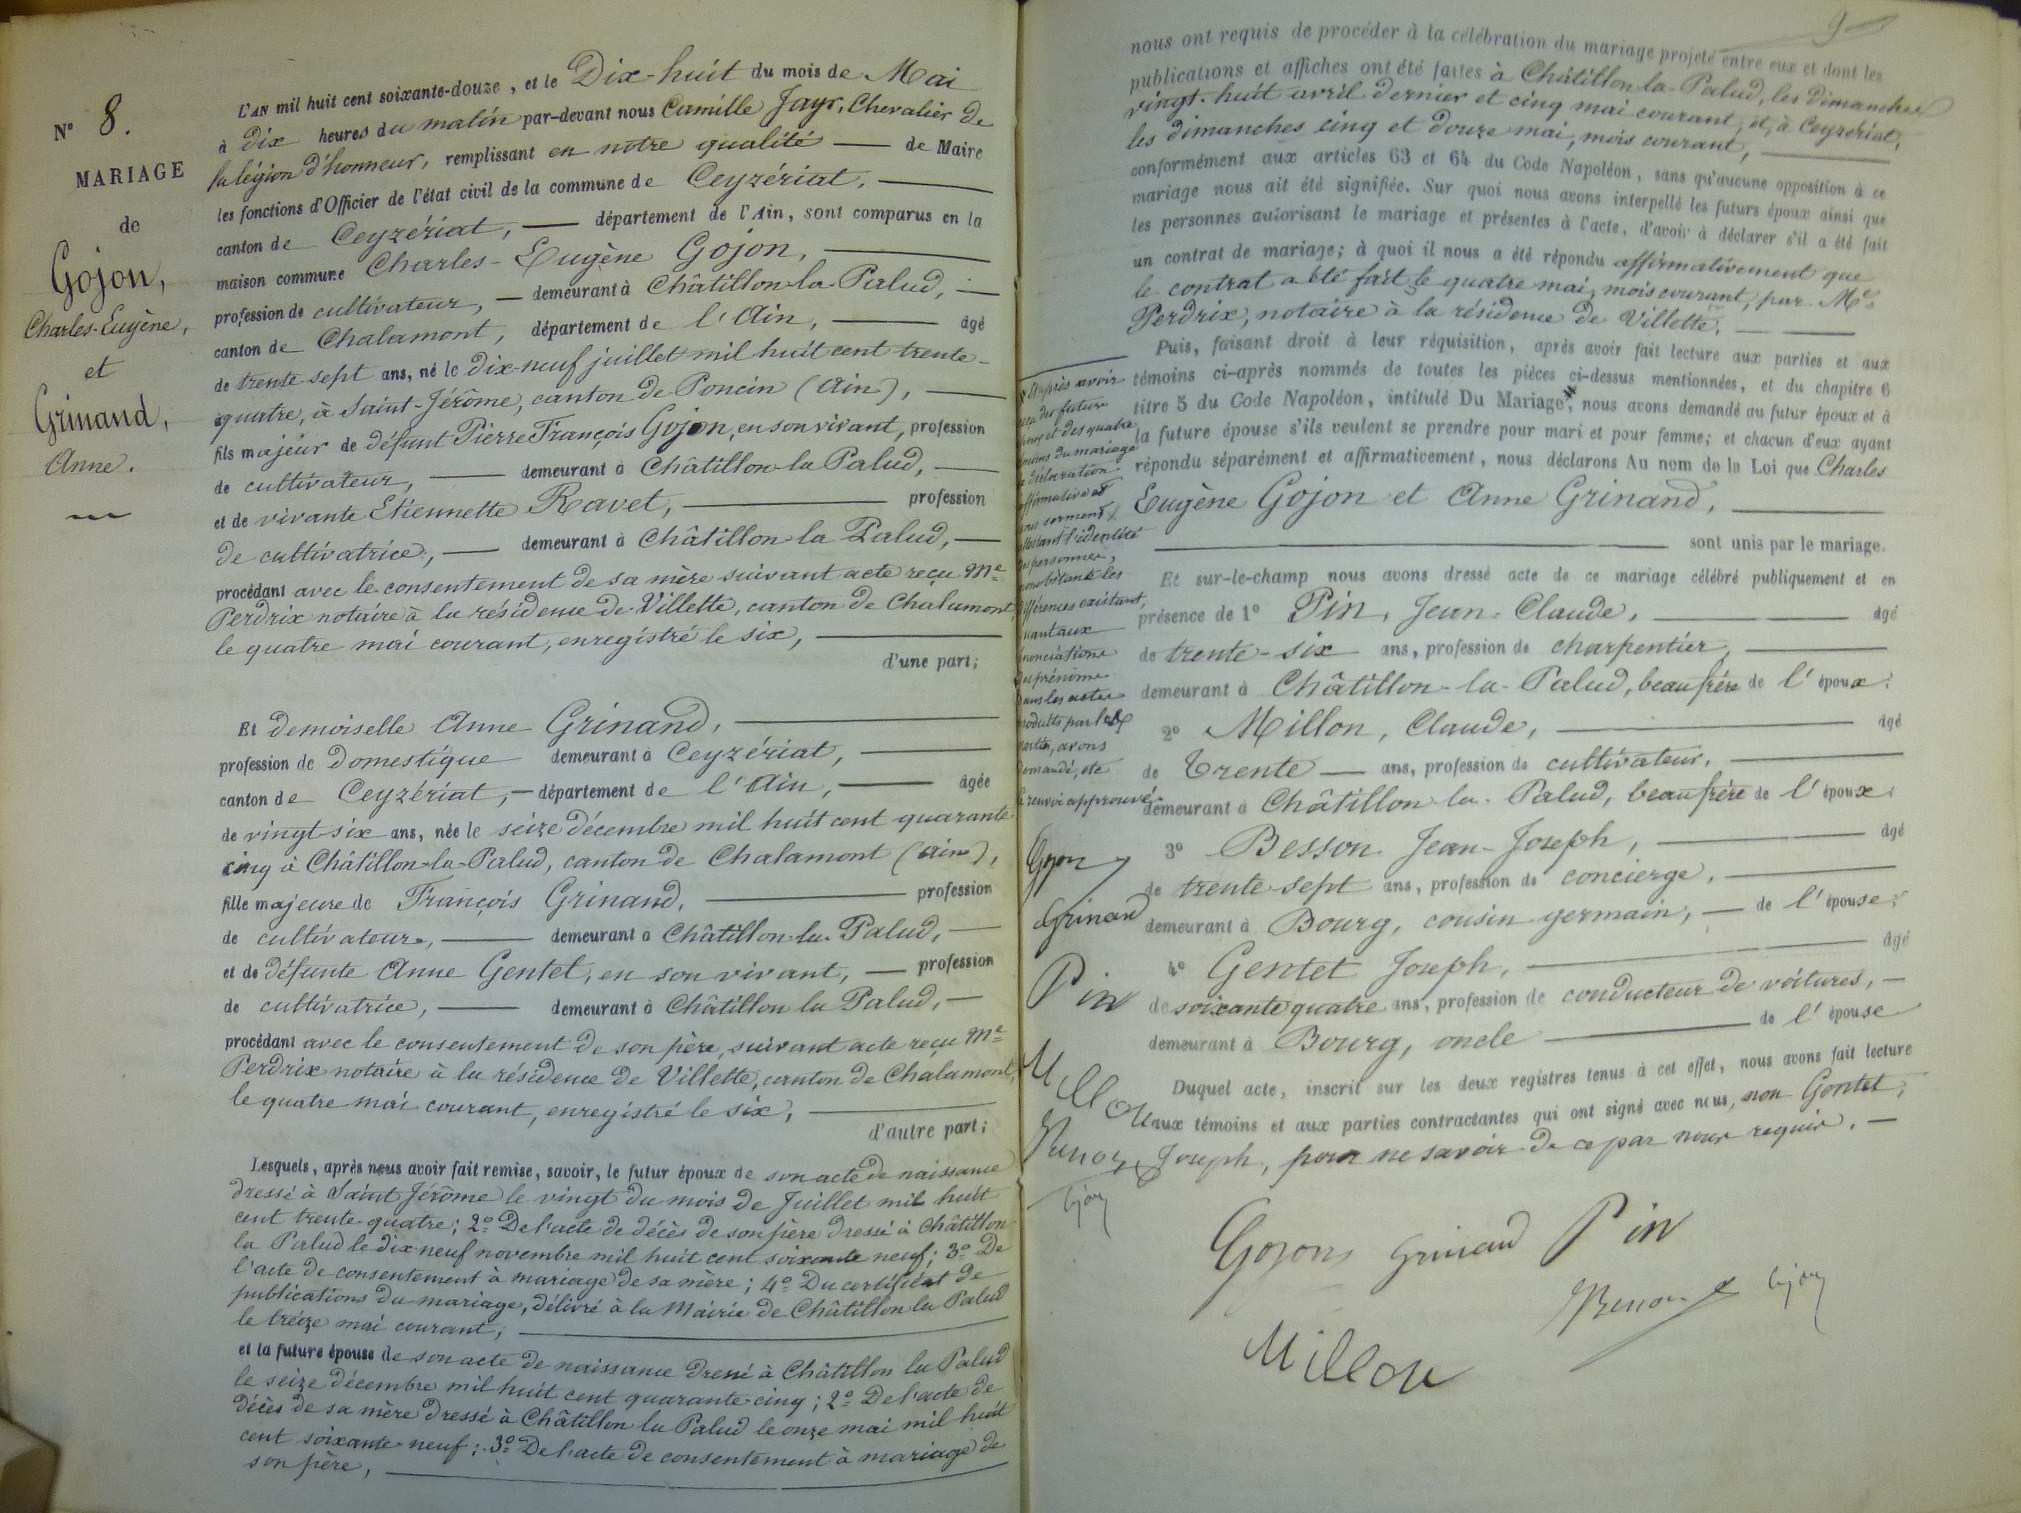 N° 8.
MARIAGE
de
Gojon,
Charles-Eugène,
et
Grinand,
Anne.
L'AN mil huit cent soixante-douze, et le Dix-huit du mois de Mai
à dix heures du matin par-devant nous Camille Jayr, Chevalier de
la légion d'honneur, remplissant en notre qualité — de Maire
les fonctions d'Officier de l'état civil de la commune de Ceyzériat,
canton de Ceyzériat, — département de l'Ain, sont comparus en la
maison commune Charles-Eugène Gojon,
profession de cultivateur, — demeurant à Châtillon-la-Palud, —
canton de Chalamont, département de l'Ain, — âgé
de trente-sept ans, né le dix-neuf juillet mil huit cent trente-
quatre, à Saint-Jérôme, canton de Poncin (Ain),
fils majeur de défunt Pierre François Gojon, en son vivant, profession
de cultivateur, — demeurant à Châtillon la Palud, —
et de vivante Etiennette Ravet, — profession
de cultivatrice, — demeurant à Châtillon la Palud, —
procédant avec le consentement de sa mère suivant acte reçu Me
Perdrix notaire à la résidence de Villette, canton de Chalamont,
le quatre mai courant, enregistré le six,
d'une part;
Et demoiselle Anne Grinand,
profession de domestique demeurant à Ceyzériat,
canton de Ceyzériat, — département de l'Ain, — âgée
de vingt six ans, née le seize décembre mil huit cent quarante
cinq à Châtillon-la-Palud, canton de Chalamont (Ain),
fille majeure de François Grinand, — profession
de cultivateur, — demeurant à Châtillon-la-Palud, —
et de défunte Anne Gentet, en son vivant, — profession
de cultivatrice, — demeurant à Châtillon la Palud, —
procédant avec le consentement de son père, suivant acte reçu Me
Perdrix notaire à la résidence de Villette, canton de Chalamont,
le quatre mai courant, enregistré le six,
d'autre part;
Lesquels, après nous avoir fait remise, savoir, le futur époux de son acte de naissance
dressé à Saint Jérôme le vingt du mois de Juillet mil huit
cent trente-quatre; 2° De l'acte de décès de son père dressé à Châtillon
la Palud le dix neuf novembre mil huit cent soixante neuf; 3° De
l'acte de consentement à mariage de sa mère; 4° Du certificat de
publications du mariage, délivré à la Mairie de Châtillon la Palud
le treize mai courant,
et la future épouse de son acte de naissance dressé à Châtillon la Palud
le seize décembre mil huit cent quarante-cinq; 2° De l'acte de
décès de sa mère dressé à Châtillon la Palud le onze mai mil huit
cent soixante-neuf; 3° De l'acte de consentement à mariage de
son père,
9
nous ont requis de procéder à la célébration du mariage projeté entre eux et dont les
publications et affiches ont été faites à Châtillon-la-Palud, les dimanches
vingt-huit avril dernier et cinq mai courant, et, à Ceyzériat,
les dimanches cinq et douze mai, mois courant,
conformément aux articles 63 et 64 du Code Napoléon, sans qu'aucune opposition à ce
mariage nous ait été signifiée. Sur quoi nous avons interpellé les futurs époux ainsi que
les personnes autorisant le mariage et présentes à l'acte, d'avoir à déclarer s'il a été fait
un contrat de mariage; à quoi il nous a été répondu affirmativement que
le contrat a été fait le quatre mai, mois courant, par Me
Perdrix, notaire à la résidence de Villette.
Puis, faisant droit à leur réquisition, après avoir fait lecture aux parties et aux
témoins ci-après nommés de toutes les pièces ci-dessus mentionnées, et du chapitre 6
titre 5 du Code Napoléon, intitulé Du Mariage, nous avons demandé au futur époux et à
la future épouse s'ils veulent se prendre pour mari et pour femme; et chacun d'eux ayant
répondu séparément et affirmativement, nous déclarons Au nom de la Loi que Charles
Eugène Gojon et Anne Grinand,
sont unis par le mariage.
Et sur-le-champ nous avons dressé acte de ce mariage célébré publiquement et en
présence de 1° Pin, Jean-Claude, — âgé
de trente-six ans, profession de charpentier,
demeurant à Châtillon-la-Palud, beau frère de l'époux;
2° Millon, Claude, — âgé
de Trente — ans, profession de cultivateur,
demeurant à Châtillon-la-Palud, beau frère de l'époux;
3° Besson Jean-Joseph, — âgé
de trente-sept ans, profession de concierge,
demeurant à Bourg, cousin germain, — de l'épouse;
4° Gentet Joseph, — âgé
de soixante quatre ans, profession de conducteur de voitures, —
demeurant à Bourg, oncle — de l'épouse
Duquel acte, inscrit sur les deux registres tenus à cet effet, nous avons fait lecture
aux témoins et aux parties contractantes qui ont signé avec nous, non Gentet,
Joseph, pour ne savoir de ce par nous requis. —
Après avoir
des futurs
et des quatre
du mariage
déclaration
affirmative et
sous serment,
attestant l'identité
des personnes,
nonobstant les
différences existant,
quant aux
énonciations
du prénom
dans les actes
produits par les
parties, avons
demandé, etc
renvoi approuvé
Gojon
Grinand
Pin
Millon
Gojon Grinand Pin
Millon